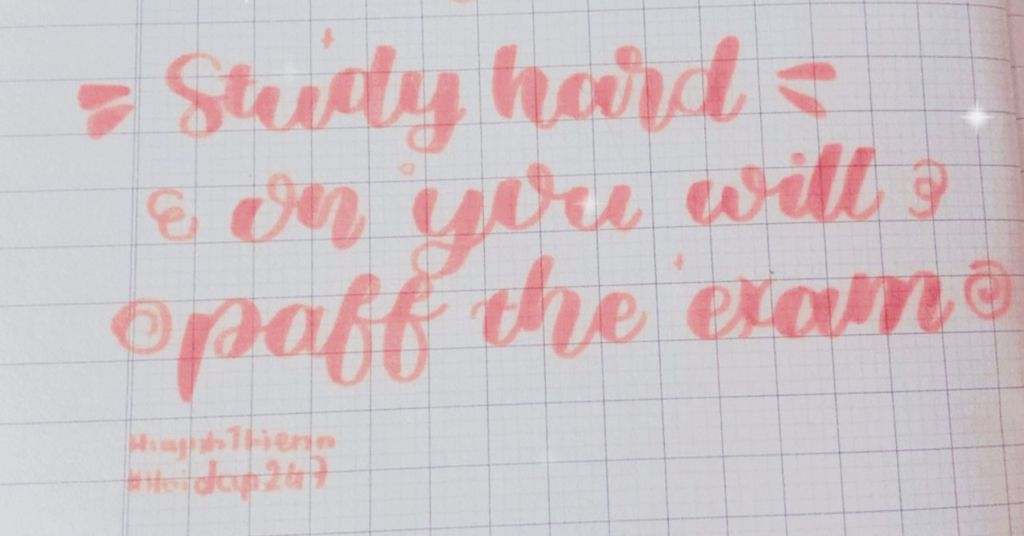 Study hard
on you will
paff the exam
#Hoidap247